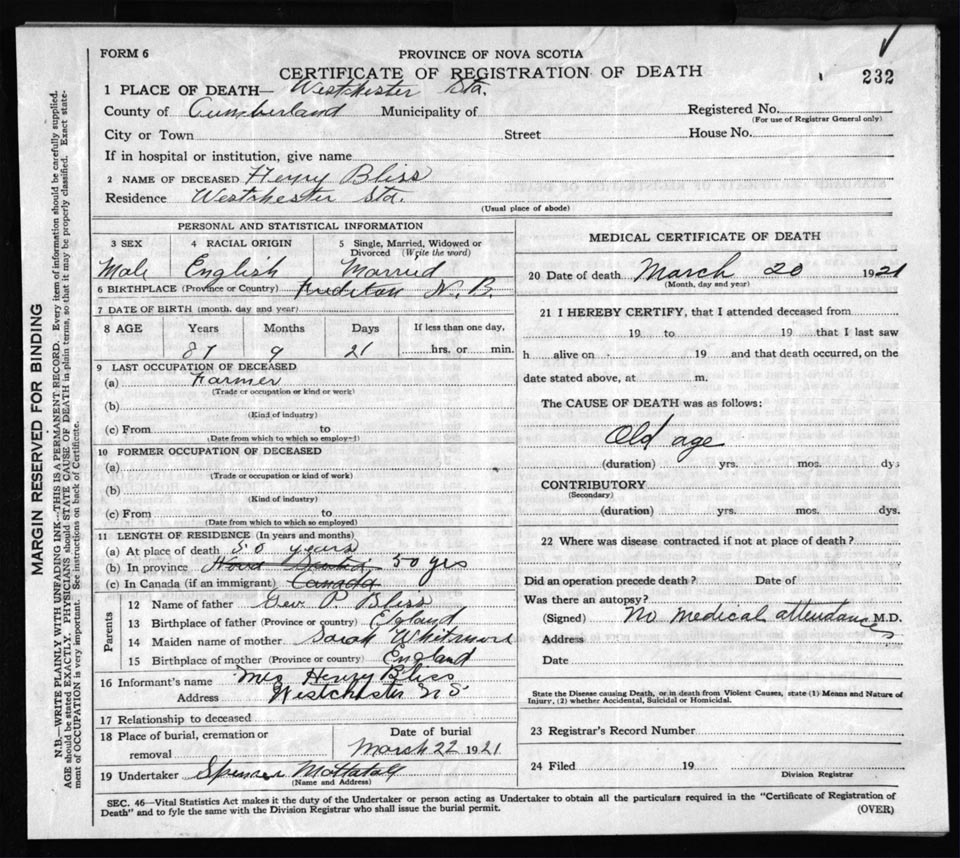 FORM 6
PROVINCE OF NOVA SCOTIA
CERTIFICATE OF REGISTRATION OF DEATH
232
1 PLACE OF DEATH— Westchester Sta.
County of Cumberland Municipality of
Registered No.
(For use of Registrar General only)
City or Town Street House No.
If in hospital or institution, give name
2 NAME OF DECEASED Henry Bliss
Residence Westchester Sta.
(Usual place of abode)
PERSONAL AND STATISTICAL INFORMATION
3 SEX 4 RACIAL ORIGIN 5 Single, Married, Widowed or
Divorced (Write the word)
Male English Married
6 BIRTHPLACE (Province or Country) N. B.
7 DATE OF BIRTH (month, day and year)
8 AGE Years Months Days If less than one day,
87 9 21 hrs. or min.
9 LAST OCCUPATION OF DECEASED
(a) Farmer
(Trade or occupation or kind or work)
(b)
(Kind of industry)
(c) From to
(Date from which to which so employed)
10 FORMER OCCUPATION OF DECEASED
(a)
(Trade or occupation or kind of work)
(b)
(Kind of industry)
(c) From to
(Date from which to which so employed)
11 LENGTH OF RESIDENCE (In years and months)
(a) At place of death 50 years
(b) In province Nova Scotia 50 yrs
(c) In Canada (if an immigrant) Canada
Parents
12 Name of father Geo. P. Bliss
13 Birthplace of father (Province or country) Egland
14 Maiden name of mother Sarah
15 Birthplace of mother (Province or country) England
16 Informant's name Mrs Henry Bliss
Address Westchester N S
17 Relationship to deceased
18 Place of burial, cremation or
removal
Date of burial
March 22 1921
19 Undertaker Spencer Mattatall
(Name and Address)
MEDICAL CERTIFICATE OF DEATH
20 Date of death March 20 1921
(Month, day and year)
21 I HEREBY CERTIFY, that I attended deceased from
19 to 19 that I last saw
h alive on 19 and that death occurred, on the
date stated above, at m.
The CAUSE OF DEATH was as follows:
Old age
(duration) yrs. mos. dys
CONTRIBUTORY
(Secondary)
(duration) yrs. mos. dys.
22 Where was disease contracted if not at place of death?
Did an operation precede death? Date of
Was there an autopsy?
(Signed) No medical attendances M.D.
Address
Date
State the Disease causing Death, or in death from Violent Causes, state (1) Means and Nature of
Injury, (2) whether Accidental, Suicidal or Homicidal.
23 Registrar's Record Number
24 Filed 19
Division Registrar
SEC. 46—Vital Statistics Act makes it the duty of the Undertaker or person acting as Undertaker to obtain all the particulars required in the "Certificate of Registration of
Death" and to fyle the same with the Division Registrar who shall issue the burial permit.
(OVER)
MARGIN RESERVED FOR BINDING
N.B.—WRITE PLAINLY WITH UNFADING INK—THIS IS A PERMANENT RECORD. Every item of information should be carefully supplied.
AGE should be stated EXACTLY. PHYSICIANS should STATE CAUSE OF DEATH in plain terms, so that it may be properly classified. Exact state-
ment of OCCUPATION is very important. See instructions on back of Certificate.